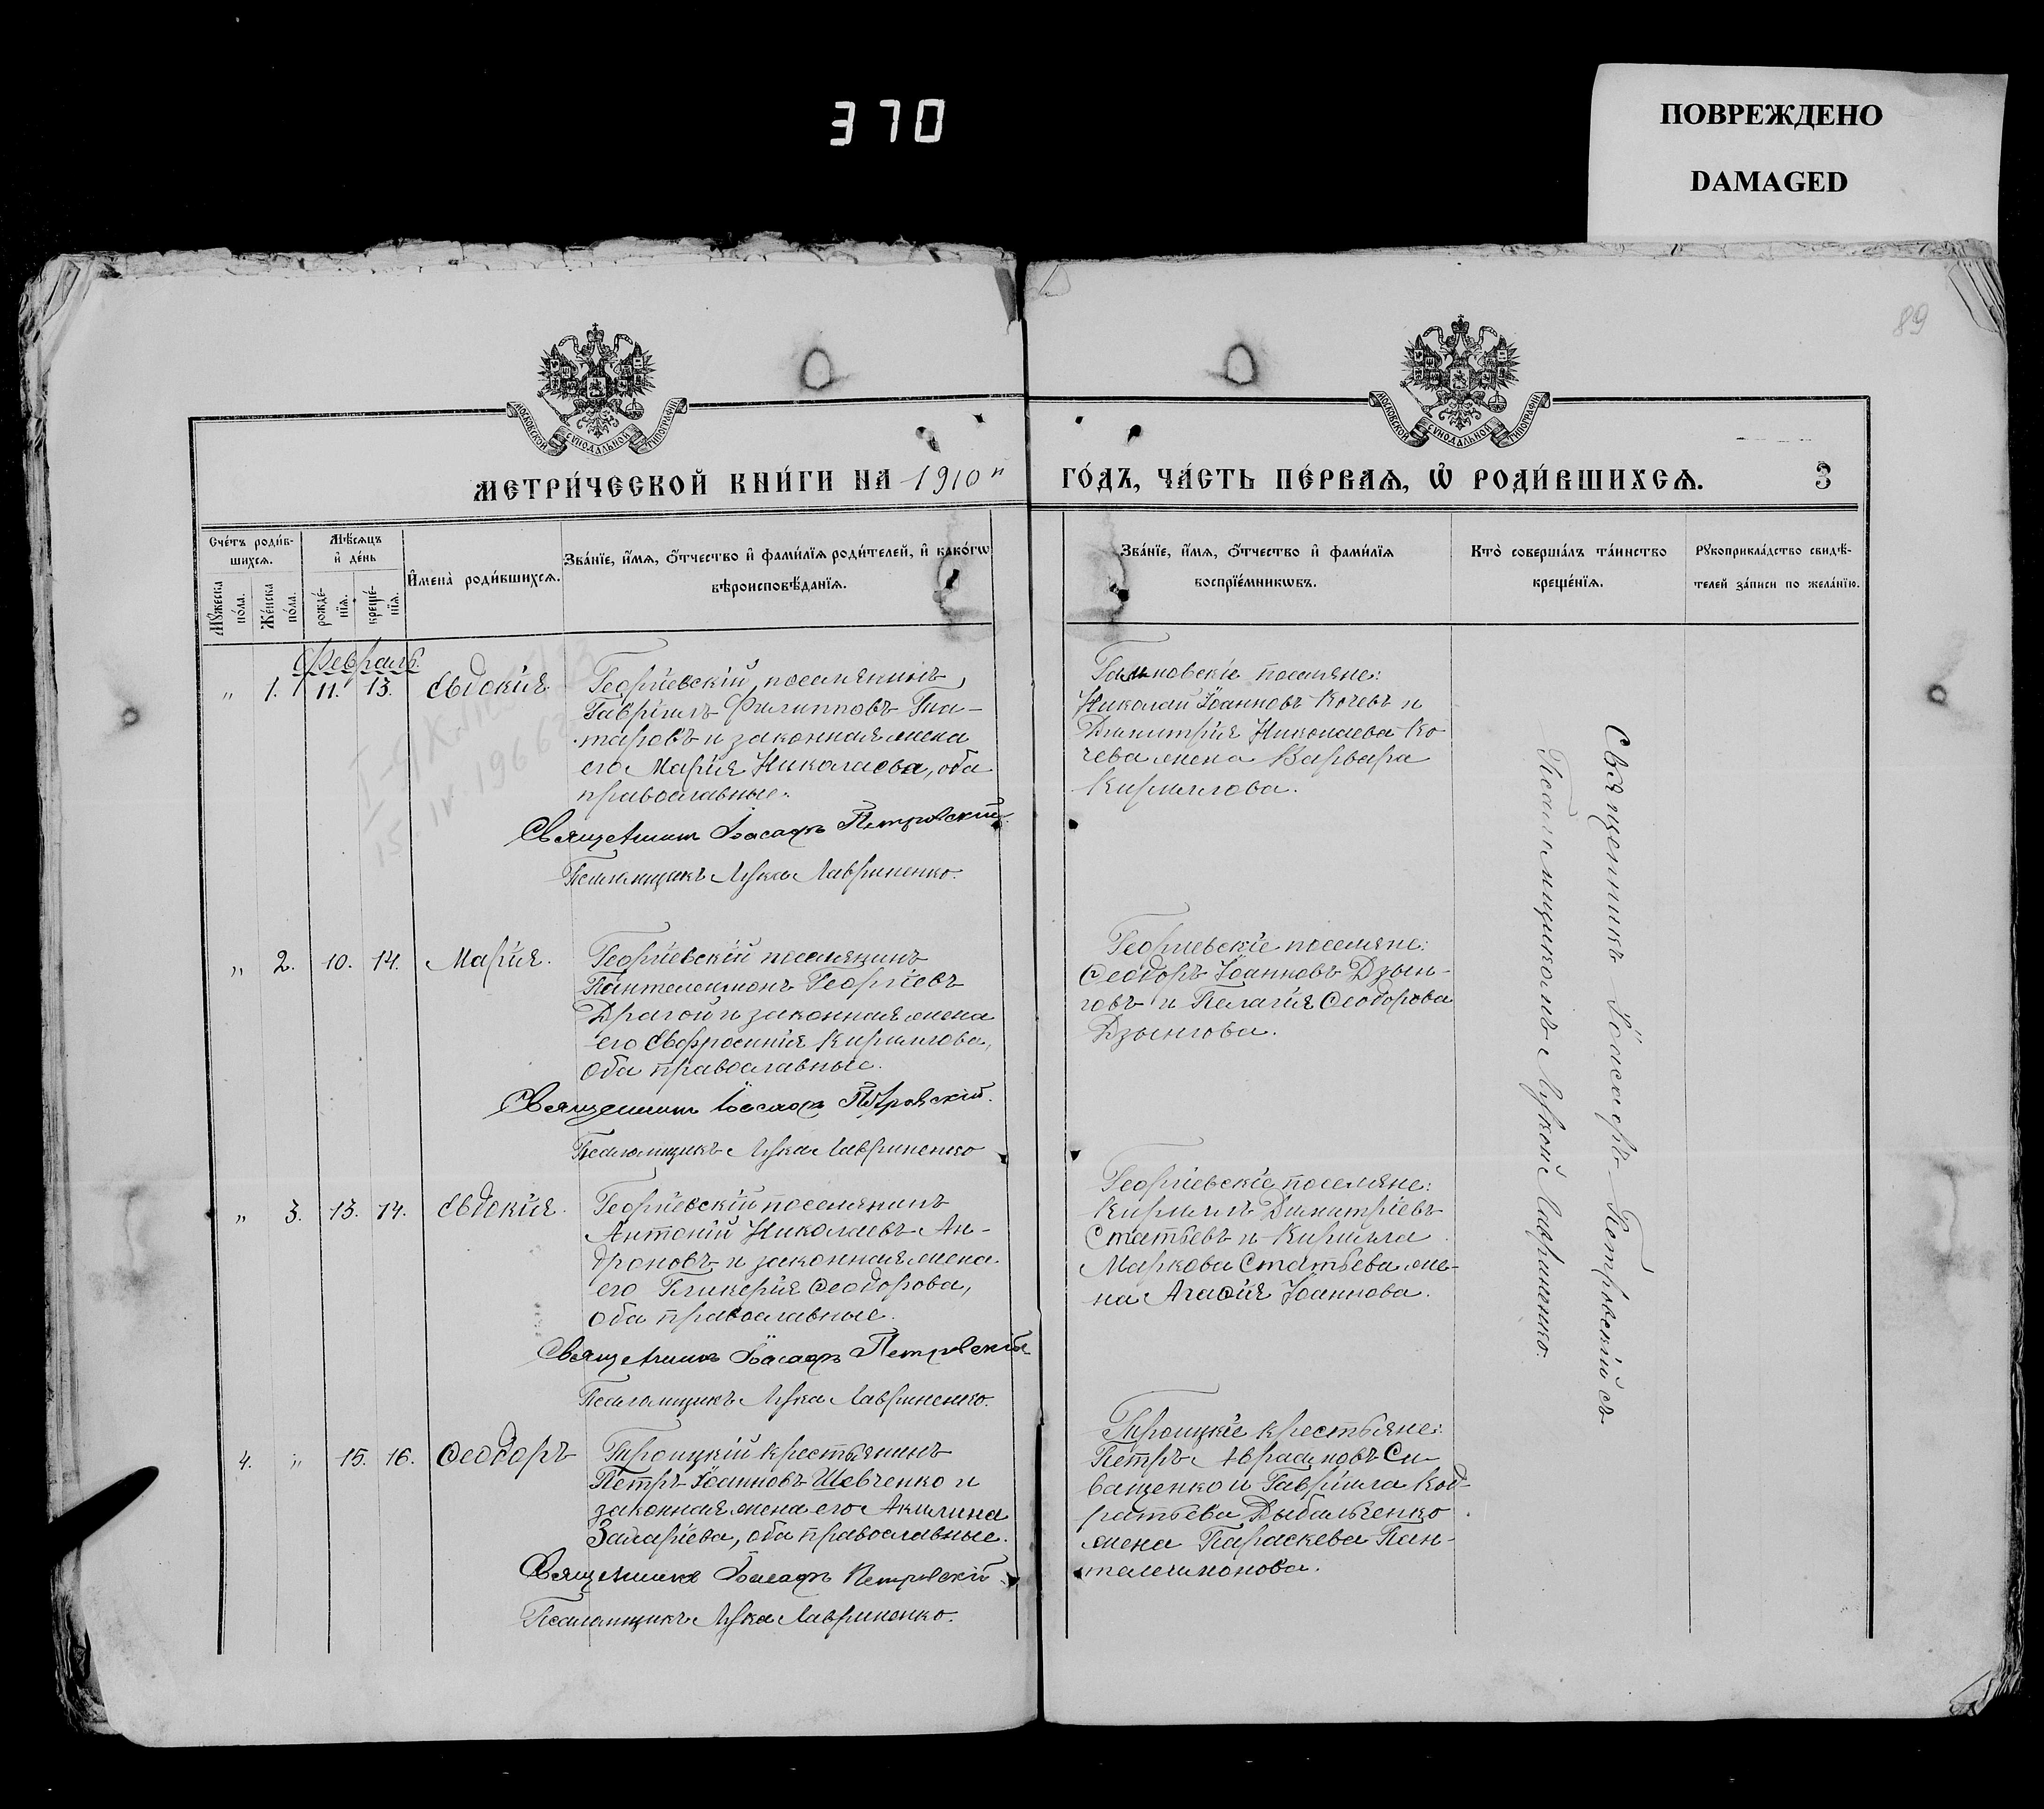 370
ПОВРЕЖДЕНО
DAMAGED
89
МОСКОВСКОЙ СѴНОДАЛЬНОЙ ТИПОГРАФІИ
МОСКОВСКОЙ СѴНОДАЛЬНОЙ ТИПОГРАФІИ
МЕТРИ́ЧЕСКОЙ КНИ́ГИ НА 1910й ГО́ДЪ, ЧА́СТЬ ПЕ́РВАѦ, Ѽ РОДИ́ВШИХСѦ. 3
Сче́тъ роди́в-
шихсѧ.
Мꙋ́жеска
по́ла.
Же́нска
по́ла.
Мѣ́сѧцъ
и҆ де́нь
рожде́-
нїѧ.
креще́-
нїѧ.
И҆мена̀ роди́вшихсѧ.
Зва́нїе, и҆́мѧ, ѻ҆́тчество и҆ фами́лїѧ роди́телей, и҆ како́гѡ
вѣроисповѣ́данїѧ.
Зва́нїе, и҆́мѧ, ѻ҆́тчество и҆ фами́лїѧ
воспрїе́мникѡвъ.
Кто̀ соверша́лъ та́инство
креще́нїѧ.
Рꙋкоприкла́дство свидѣ́-
телей за́писи по жела́нїю.
Февраль.
" 1. 11. 13. Евдокія.
Георгіевскій поселянинъ
Гавріилъ Филипповъ Гла-
таровъ и законная жена
его Марія Николаева, оба
православные.
Священникъ Іоасафъ Петровскій.
Псаломщикъ Лука Лавриненко.
поселяне:
Николай Іоанновъ Кочевъ и
Димитрія Николаева Ко
чева жена Варвара
Кириллова.
" 2. 10. 14. Марія.
Георгіевскій поселянинъ
Пантелеимонъ Георгіевъ
Драгой и законная жена
его Евфросинія Кириллова,
оба православные.
Священникъ Іоасафъ Петровскій.
Псаломщикъ Лука Лавриненко
Георгіевскіе поселяне:
Ѳеодоръ Іоанновъ Дзын-
говъ и Пелагія Ѳеодорова
Дзынгова.
" 3. 13. 14. Евдокія.
Георгіевскій поселянинъ
Антоній Николаевъ Ан-
дроновъ и законная жена
его Гликерія Ѳеодорова,
оба православные.
Священникъ Іоасафъ Петровскій
Псаломщикъ Лука Лавриненко.
Георгіевскіе поселяне:
Кириллъ Димитріевъ
Статьевъ и Кирилла
Маркова Статьева же-
на Агаѳія Іоаннова.
4. " 15. 16. Ѳеодоръ
Троицкій крестьянинъ
Петръ Іоанновъ Шевченко и
законная жена его Акилина
Захаріева, оба православные.
Священникъ Іоасафъ Петровскій
Псаломщикъ Лука Лавриненко.
Троицкіе крестьяне:
Петръ Аврамовъ Си
ващенко и Гавріила Код-
ратьева Дыбальченко
жена Параскева Пан-
телеимонова.
Священникъ Іоасафъ Петровскій съ
Псаломщикомъ Лукой Лавриненко.